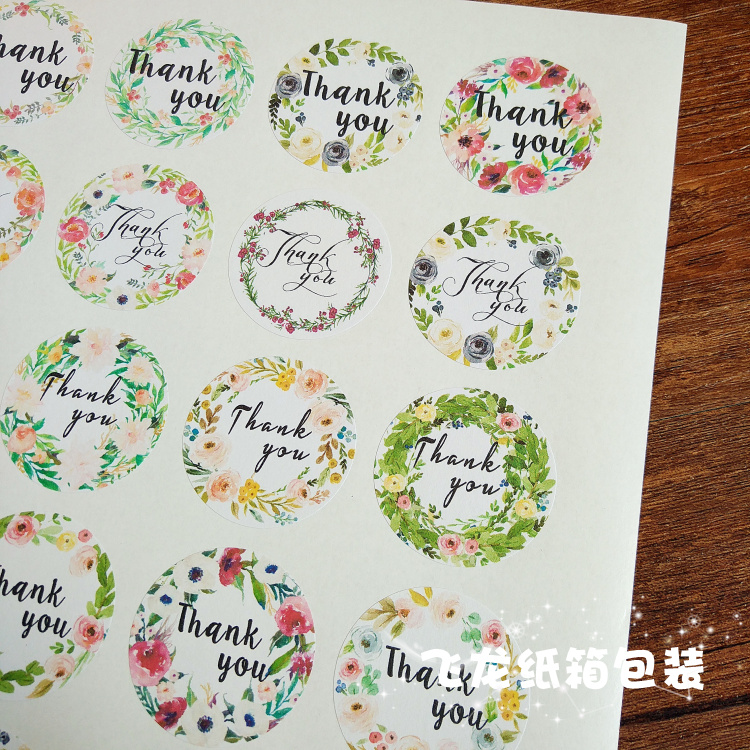 Thank
you
Thank
you
Thank
you
Thank
you
Thank
you
Thank
you
Thank
you
Thank
you
Thank
you
Thank
you
Thank
you
Thank
you
Thank
you
飞龙纸箱包装